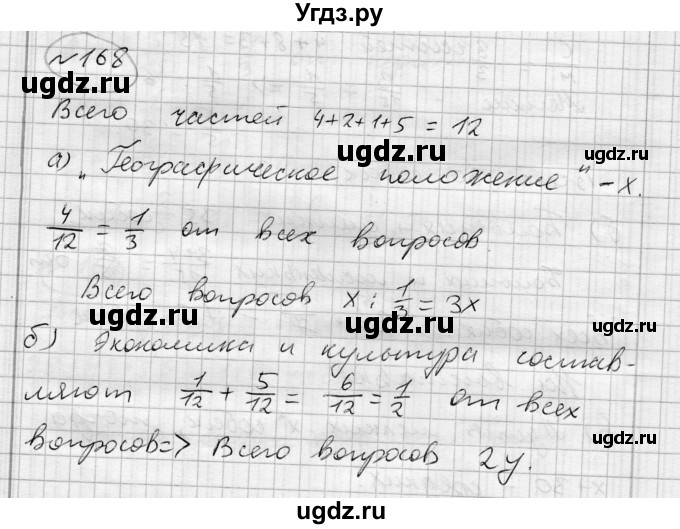 Угдз.ру
№168
Всего частей 4+2+1+5=12
а) „Географическое положение" – x.
4/12 = 1/3 от всех вопросов.
Всего вопросов x : 1/3 = 3x
б) Экономика и культура состав-
ляют 1/12 + 5/12 = 6/12 = 1/2 от всех
вопросов => Всего вопросов 2y.
ugdz.ru ugdz.ru ugdz.ru
ugdz.ru ugdz.ru ugdz.ru
ugdz.ru ugdz.ru ugdz.ru
ugdz.ru ugdz.ru ugdz.ru